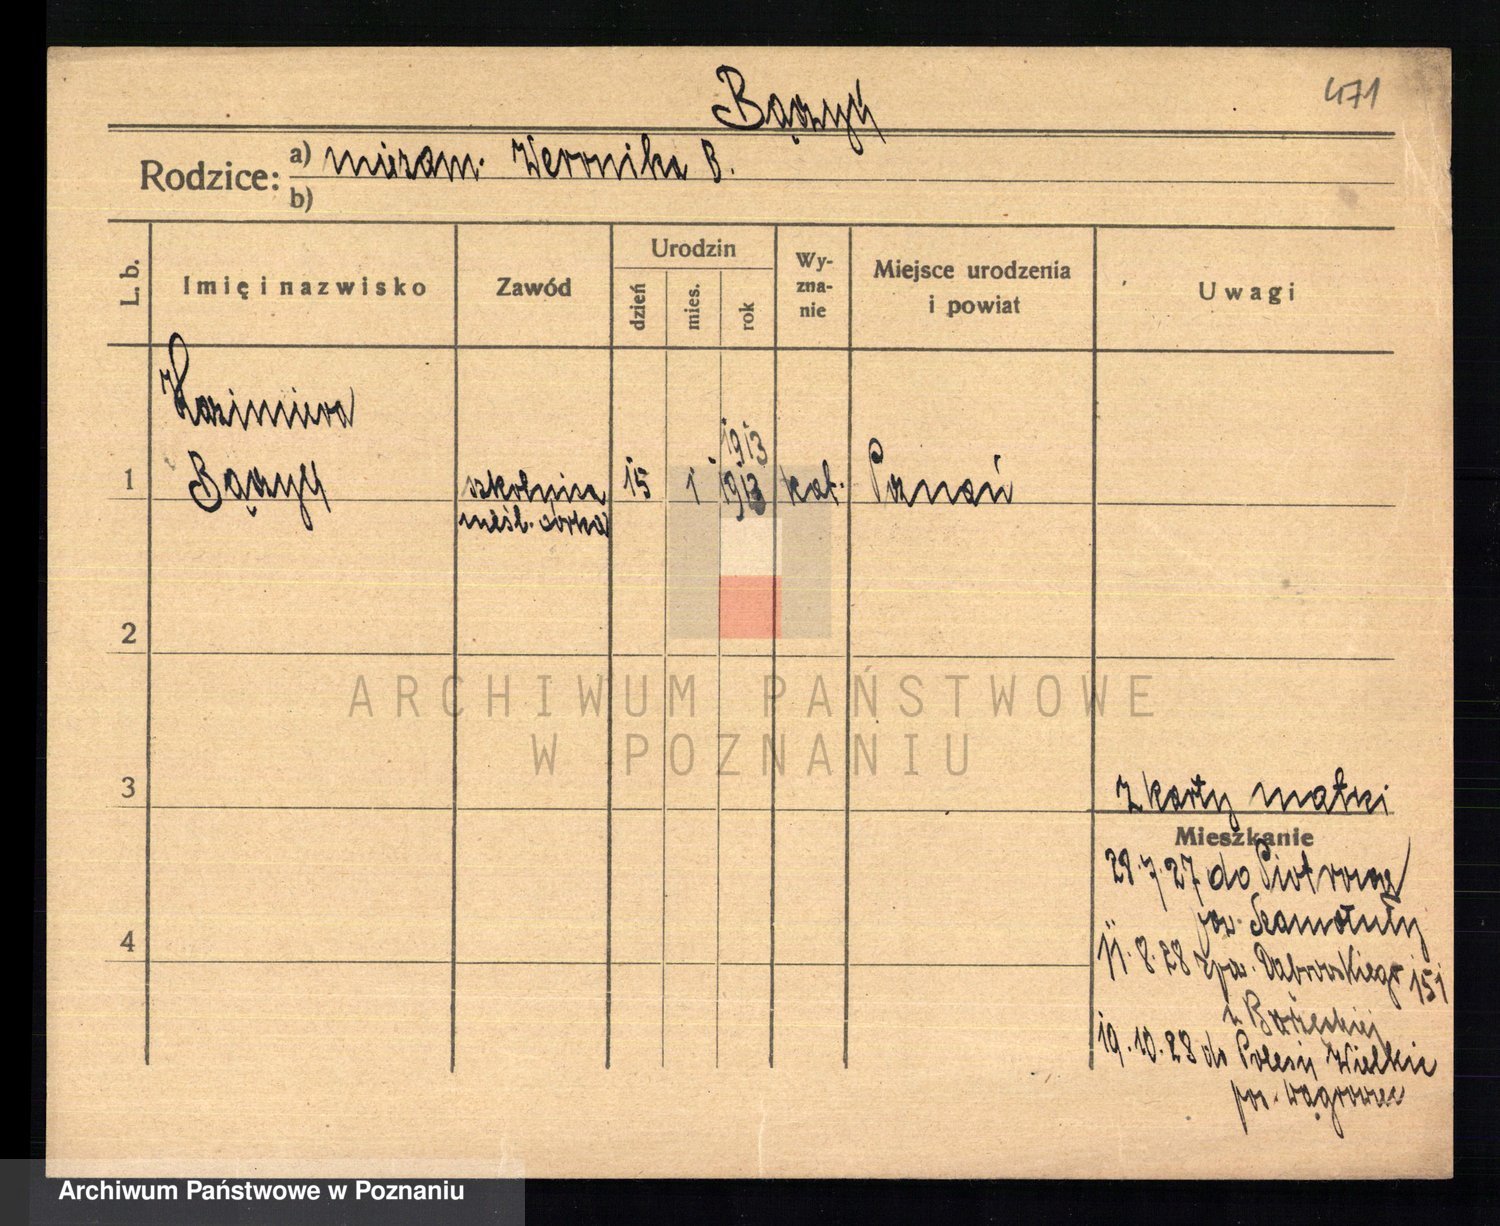 471
Bączyk
Rodzice: a) niezam. Weronika B.
b)
L. b. Imię i nazwisko Zawód Urodzin dzień mies. rok Wy-zna-nie Miejsce urodzenia i powiat Uwagi
Kazimiera
1913
1 Bączyk szkolnica 15 1 1913 kat. Poznań
nieśl. córka
2
ARCHIWUM PAŃSTWOWE
W POZNANIU
3 z karty matki
Mieszkanie
28.7.27 do Piotrowa
pow. Szamotuły
4
11.8.28 Dąbrowskiego 151
z
19.10.28 do Wielkie
pow. Wągrowiec
Archiwum Państwowe w Poznaniu